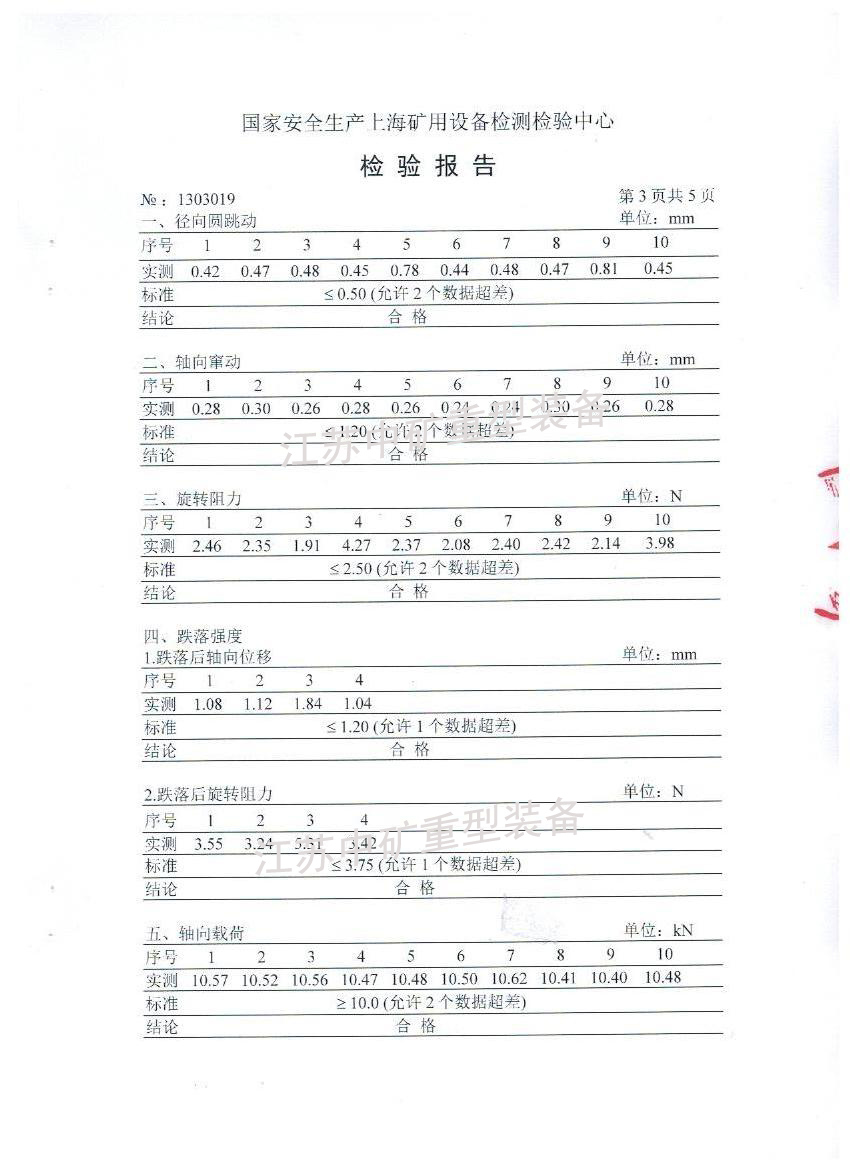 国家安全生产上海矿用设备检测检验中心
检 验 报 告
№ : 1303019 第 3 页共 5 页
一、径向圆跳动 单位：mm
序号 1 2 3 4 5 6 7 8 9 10
实测 0.42 0.47 0.48 0.45 0.78 0.44 0.48 0.47 0.81 0.45
标准 ≤0.50 (允许 2 个数据超差)
结论 合 格
二、轴向窜动 单位：mm
序号 1 2 3 4 5 6 7 8 9 10
实测 0.28 0.30 0.26 0.28 0.26 0.24 0.24 0.30 0.26 0.28
标准 ≤1.20 (允许 2 个数据超差)
结论 合 格
江苏中矿重型装备
三、旋转阻力 单位：N
序号 1 2 3 4 5 6 7 8 9 10
实测 2.46 2.35 1.91 4.27 2.37 2.08 2.40 2.42 2.14 3.98
标准 ≤2.50 (允许 2 个数据超差)
结论 合 格
四、跌落强度
1.跌落后轴向位移 单位：mm
序号 1 2 3 4
实测 1.08 1.12 1.84 1.04
标准 ≤1.20 (允许 1 个数据超差)
结论 合 格
2.跌落后旋转阻力 单位：N
序号 1 2 3 4
实测 3.55 3.24 5.31 3.42
标准 ≤3.75 (允许 1 个数据超差)
结论 合 格
江苏中矿重型装备
五、轴向载荷 单位：kN
序号 1 2 3 4 5 6 7 8 9 10
实测 10.57 10.52 10.56 10.47 10.48 10.50 10.62 10.41 10.40 10.48
标准 ≥10.0 (允许 2 个数据超差)
结论 合 格